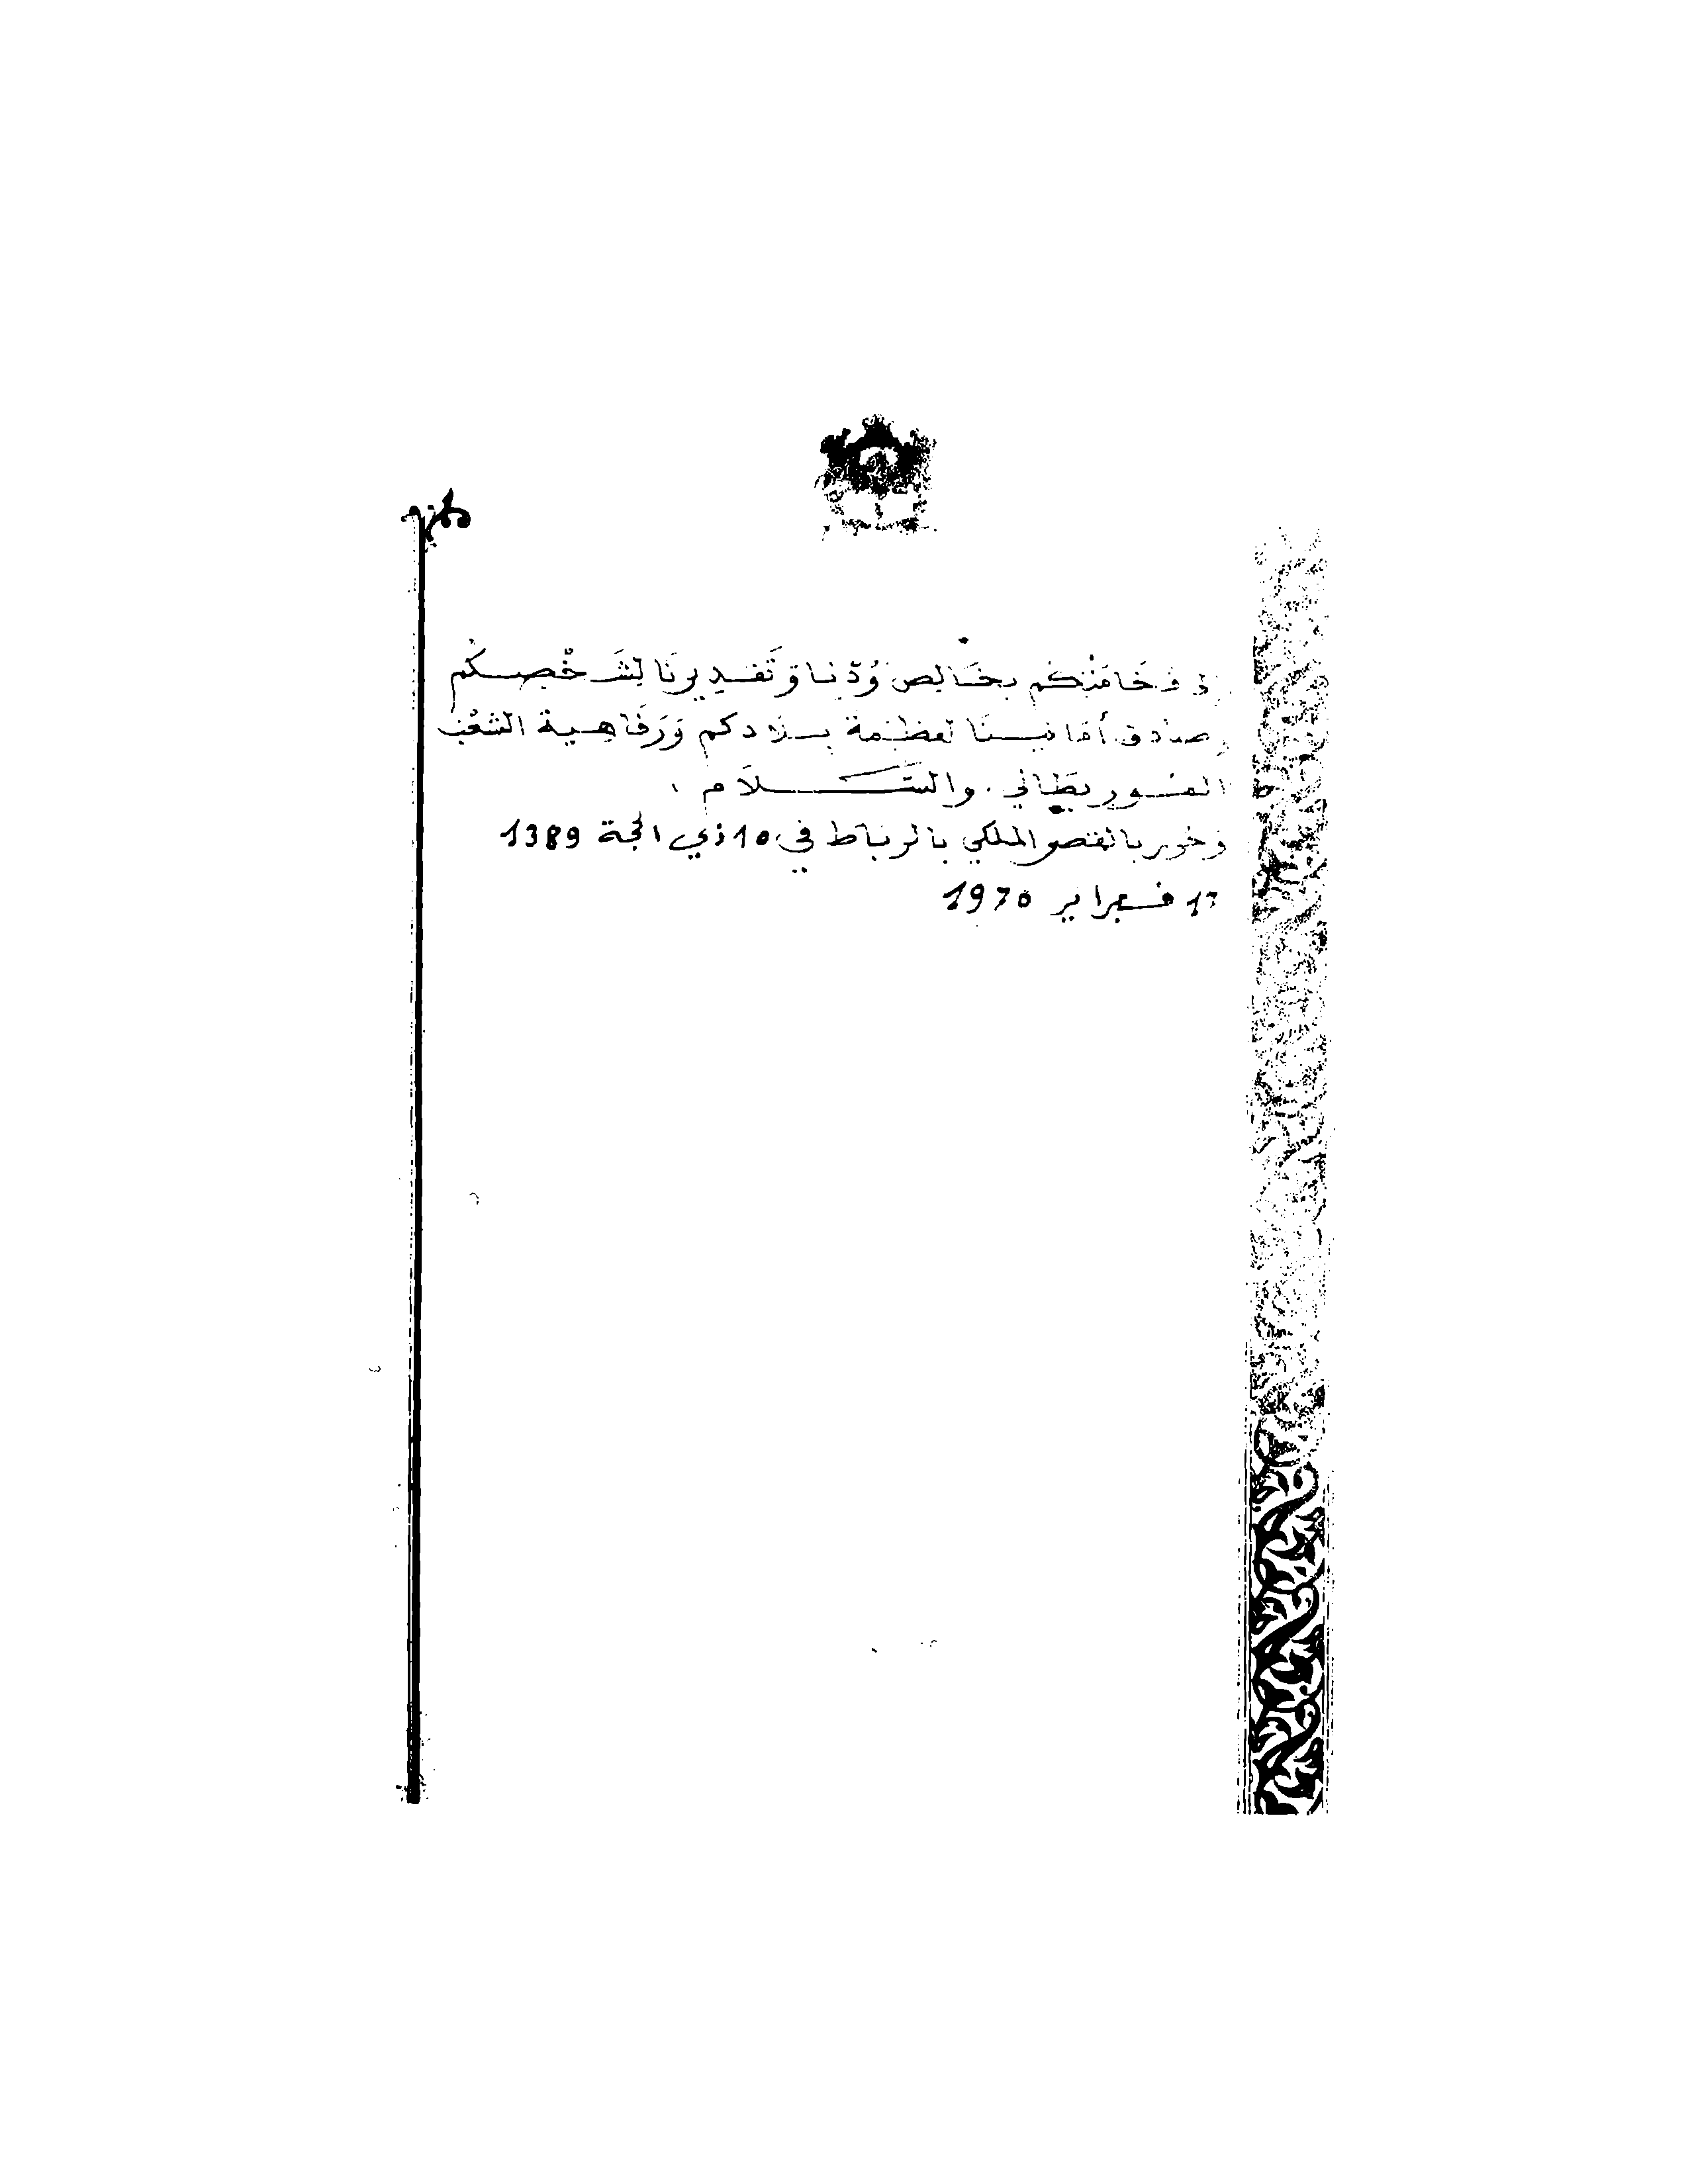 إلى فخامتكم بخالص ودّنا وتقديرنا لشخصكم
وصادق أمانينا لعظمة بلادكم ورفاهية الشعب
الموريطاني. والسّلام.
وحرر بالقصر الملكي بالرباط في 10 ذي الحجة 1389
17 فبراير 1970